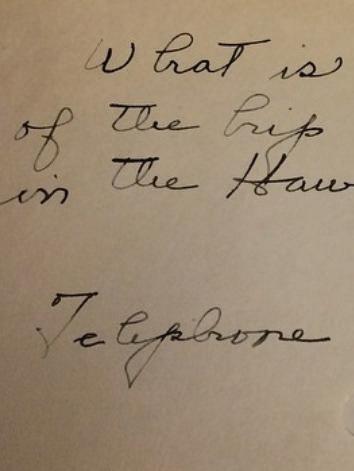 What is
of the hip
in the Haw
Telephone